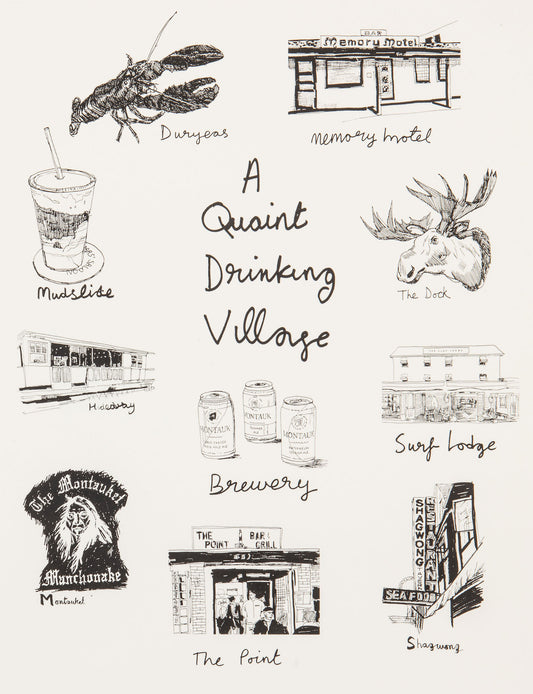 BAR
Memory Motel
Duryeas
Memory Motel
A
Quaint
Drinking
Village
Mudslide
The Dock
Hideaway
MONTAUK
MONTAUK
MONTAUK
Surf Lodge
Brewery
The Montauket
Manchonake
Montauket
THE POINT
BAR & GRILL
SHAGWONG
RESTAURANT
SEAFOOD
The Point
Shagwong